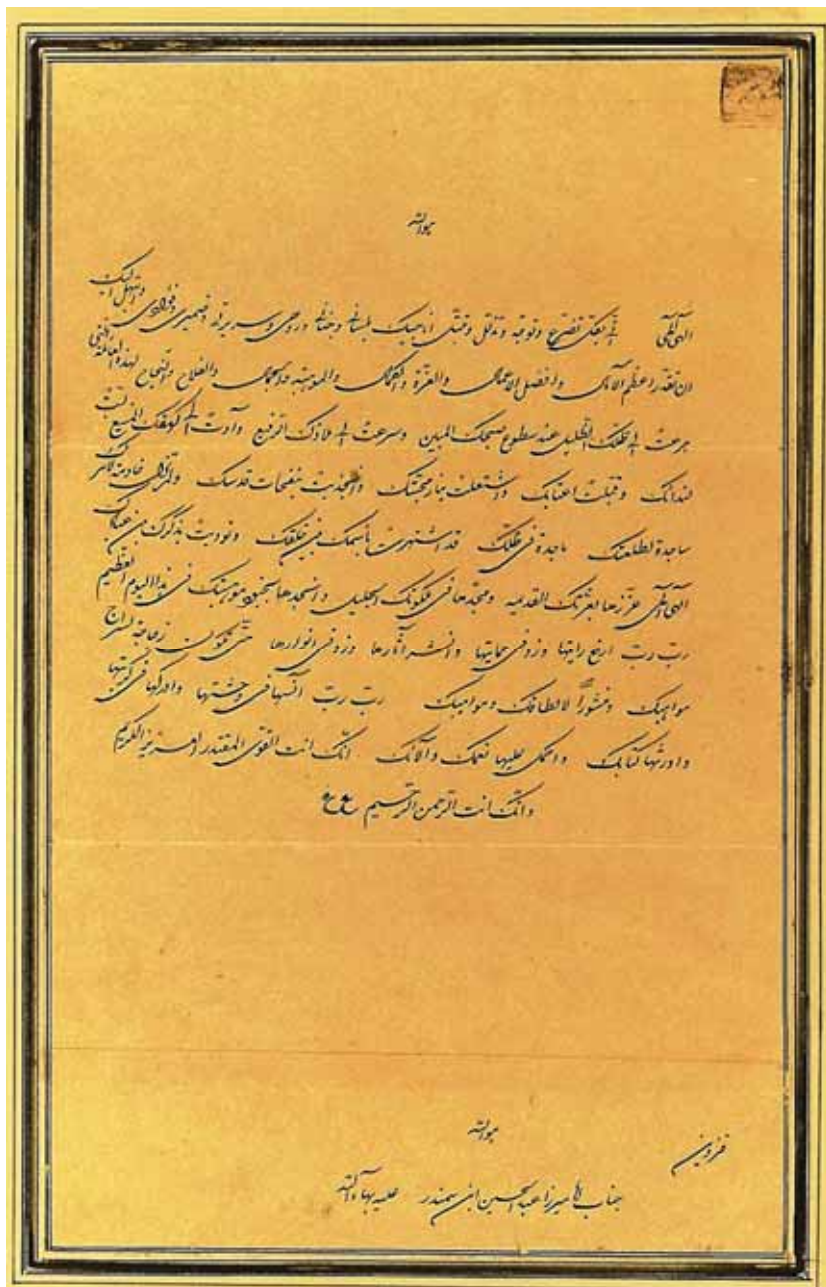 هو الله
الهی الهی انی بکل تضرع وتوجه وتذلل وتبتل اناجیک بلسانی وجنانی وروحی وسریرتی وضمیری وفؤادی وابتهل الیک
ان تقدر اعظم الآمال وافضل الاعمال والعزة والکمال والموهبة والجمال والفلاح والنجاح لهذه العائلة التی
هرعت الی ظلک الظلیل عند سطوع صبحک المبین وسرعت الی ملاذک الرفیع وآوت الی کهفک المنیع لبت
لندائک وقبلت اعتابک واشتعلت بنار محبتک وانجذبت بنفحات قدسک خادمة لامرک
ساجدة لطلعتک ماجدة فی ظلک قد اشتهرت باسمک بین خلقک ونودیت بذکرک بین عبادک
الهی الهی عززها بعزتک القدیمه ومجدها فی ملکوتک الجلیل وانجدها بجنود موهبتک فی هذا الیوم العظیم
رب رب ارفع رایتها وزد فی حمایتها وانشر آثارها وزد فی انوارها حتی تکون زجاجة لسراج
مواهبک ومنشورا لالطافک ومواهبک رب رب آنسها فی وحشتها وادرکها فی کربتها
واورثها کتابک واکمل علیها نعمک وآلائک انک انت القوی المقتدر العزیز الکریم
وانک انت الرحمن الرحیم ع ع
هو الله
قزوین
جناب میرزا عبد الحسین ابن سمندر علیه بهاء الله